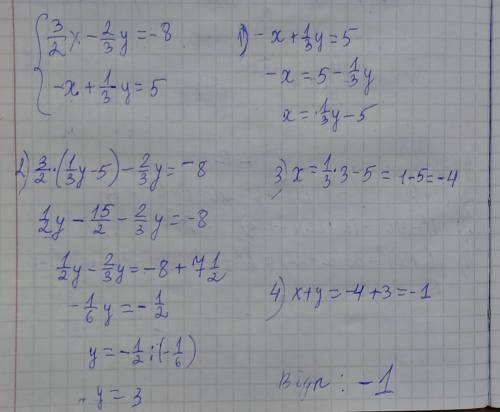 { 3/2 x - 2/3 y = -8
-x + 1/3 y = 5
1) -x + 1/3 y = 5
-x = 5 - 1/3 y
x = 1/3 y - 5
2) 3/2 · (1/3 y - 5) - 2/3 y = -8
1/2 y - 15/2 - 2/3 y = -8
1/2 y - 2/3 y = -8 + 7 1/2
-1/6 y = -1/2
y = -1/2 : (-1/6)
y = 3
3) x = 1/3 · 3 - 5 = 1 - 5 = -4
4) x + y = -4 + 3 = -1
Відп : -1